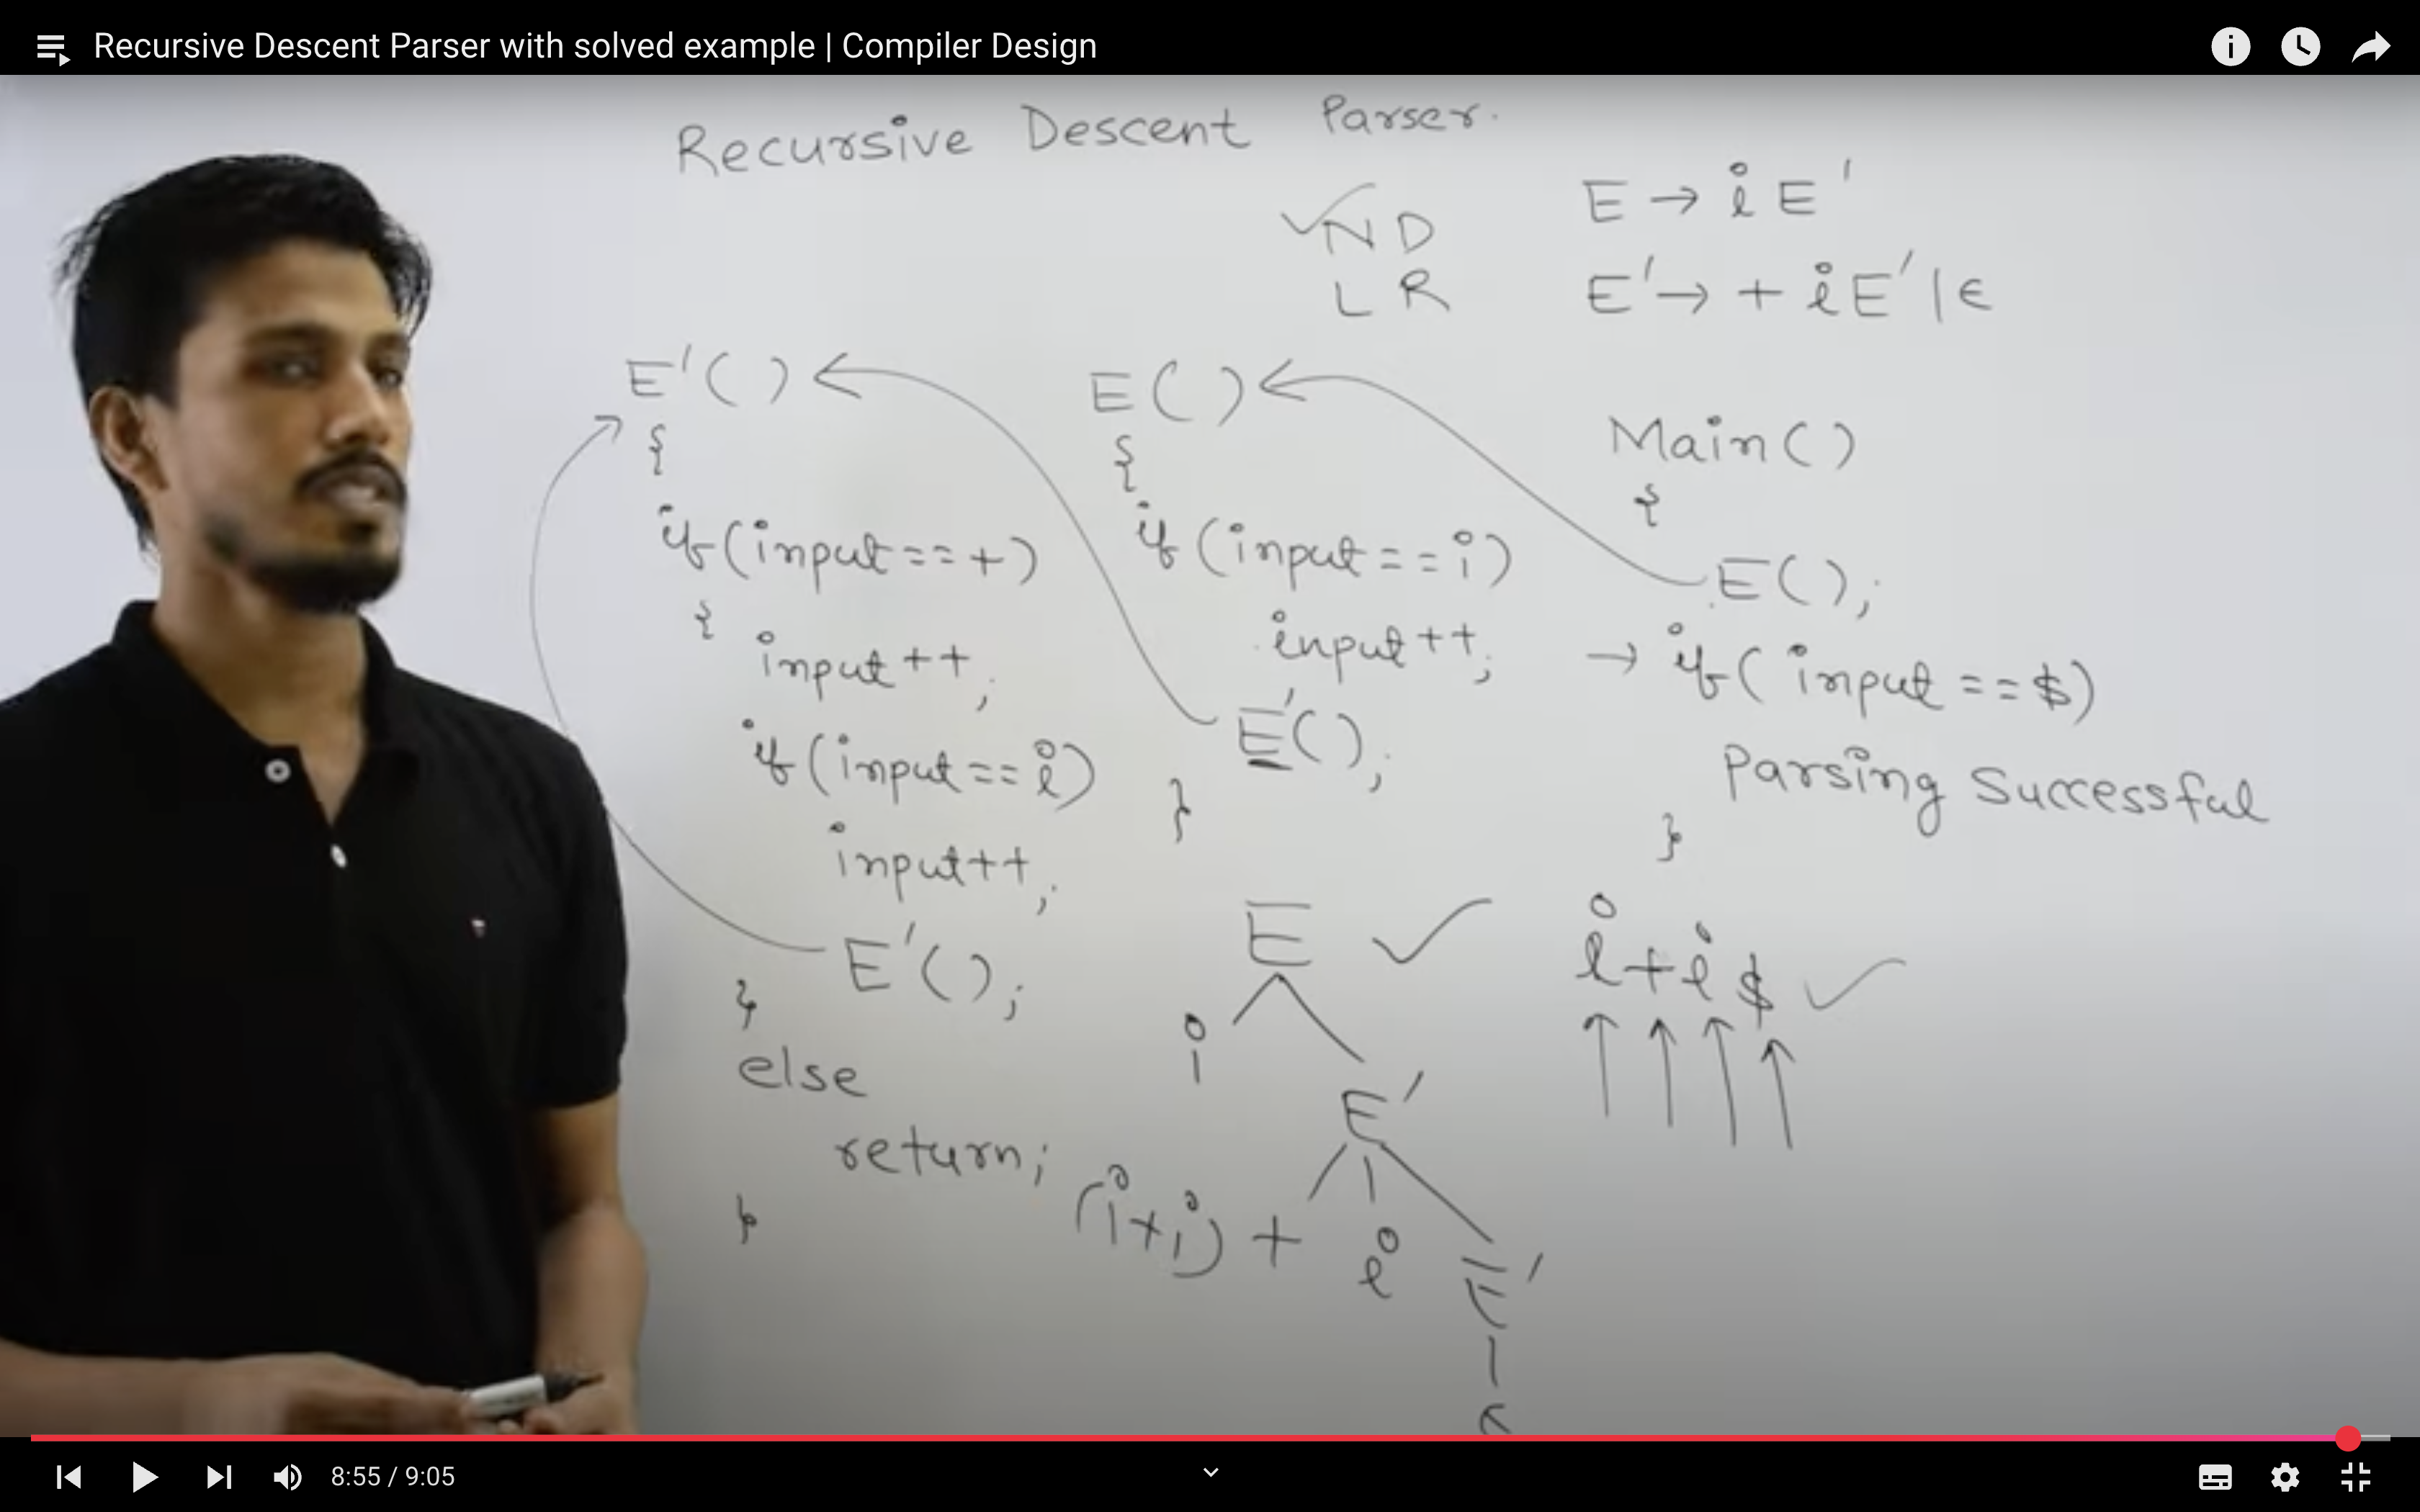 Recursive Descent Parser with solved example | Compiler Design
Recursive Descent Parser.
ND
LR
E → i E'
E' → + i E' | ϵ
E'( )
{
if(input==+)
{
input++;
if(input==i)
input++;
E'( );
}
else
return;
}
E( )
{
if(input==i)
input++;
E'( );
}
Main( )
{
E( );
→ if( input ==$)
Parsing Successful
}
E
i
E'
(i+i)
+ i E'
i+i$
8:55 / 9:05